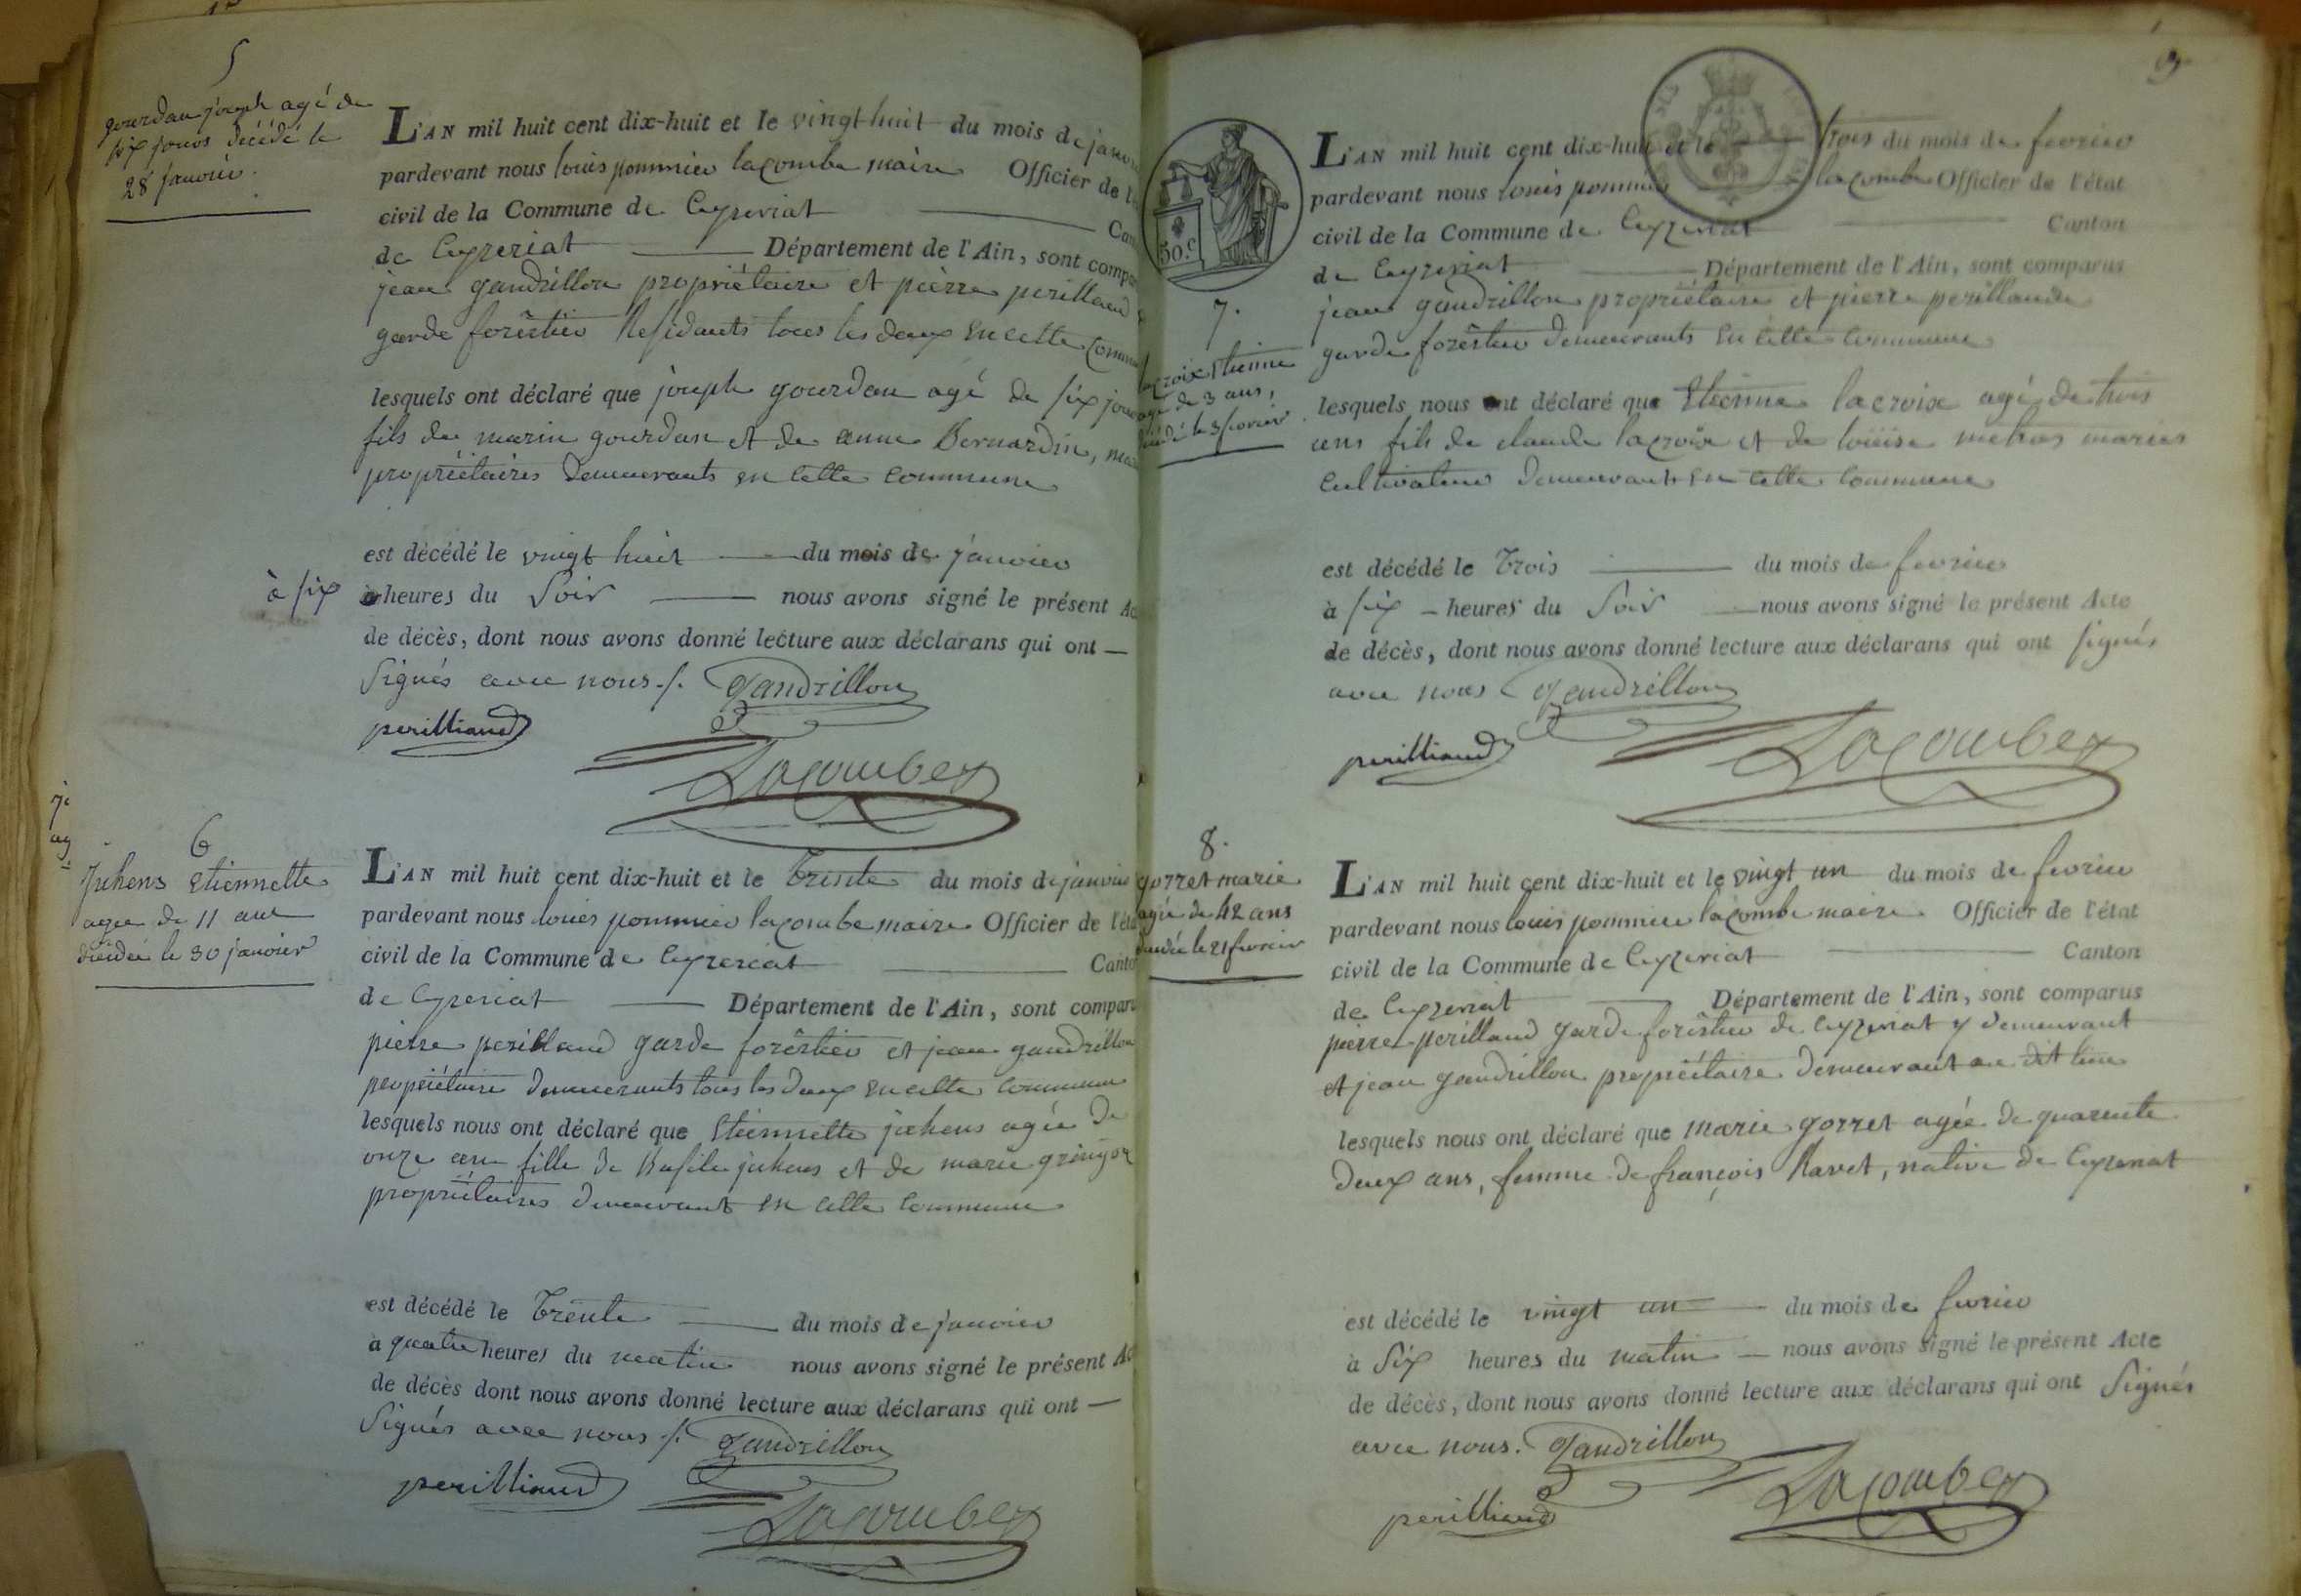 5
gourdan joseph agé de
six jours décédé le
28 janvier.
L'AN mil huit cent dix-huit et le vingt huit du mois de janvi
pardevant nous louis pommier lacombe maire Officier de l'
civil de la Commune de Ceyzeriat Can
de Ceyzeriat Département de l'Ain, sont compa
jean gandrillon propriétaire et pierre perilland
garde forêstier Residants tous les deux en cette commu
lesquels ont déclaré que joseph gourdan agé de six jou
fils de marin gourdan et de anne Bernardin, ma
propriétaires demeurants en cette commune
est décédé le vingt huit du mois de janvier
à six heures du Soir nous avons signé le présent Ac
de décès, dont nous avons donné lecture aux déclarans qui ont
Signés avec nous ./. Gandrillon
perilliaud
Lacombe
6
juhens etiennette
agée de 11 ans
décédée le 30 janvier
L'AN mil huit cent dix-huit et le Trente du mois de janvier
pardevant nous louis pommier lacombe maire Officier de l'éta
civil de la Commune de Ceyzeriat Canto
de Ceyzeriat Département de l'Ain, sont compar
pierre perilland garde forêstier et jean gandrillon
propriétaire demeurants tous les deux en cette commune
lesquels nous ont déclaré que Etiennette juhens agée de
onze ans fille de Basile juhens et de marie
propriétaires demeurants en cette commune
est décédé le Trente du mois de janvier
à quatre heures du matin nous avons signé le présent Ac
de décès dont nous avons donné lecture aux déclarans qui ont
Signés avec nous ./. Gandrillon
perilliaud
Lacombe
9
50 c.
7.
lacroix Etienne
agé de 3 ans,
décédé le 3 fevrier
L'AN mil huit cent dix-huit et le trois du mois de fevrier
pardevant nous louis pommier lacombe Officier de l'état
civil de la Commune de Ceyzeriat Canton
de Ceyzeriat Département de l'Ain, sont comparus
jean gandrillon propriétaire et pierre perillaude
garde forêstier demeurants en cette commune
lesquels nous ont déclaré que Etienne lacroix agé de trois
ans fils de claude lacroix et de loüise metras mariés
cultivateurs demeurants en cette commune
est décédé le Trois du mois de fevrier
à six heures du Soir nous avons signé le présent Acte
de décès, dont nous avons donné lecture aux déclarans qui ont signés
avec nous Gandrillon
perilliaud
Lacombe
8.
gorret marie
agée de 42 ans
décédée le 21 fevrier
L'AN mil huit cent dix-huit et le vingt un du mois de fevrier
pardevant nous louis pommier lacombe maire Officier de l'état
civil de la Commune de Ceyzeriat Canton
de Ceyzeriat Département de l'Ain, sont comparus
pierre perilland garde forêstier de Ceyzeriat y demeurant
et jean gandrillon propriétaire demeurant au dit lieu
lesquels nous ont déclaré que marie gorret agée de quarente
deux ans, femme de françois Ravet, native de Ceyzeriat
est décédé le vingt un du mois de fevrier
à Six heures du matin nous avons signé le présent Acte
de décès, dont nous avons donné lecture aux déclarans qui ont Signés
avec nous. Gandrillon
perilliaud
Lacombe